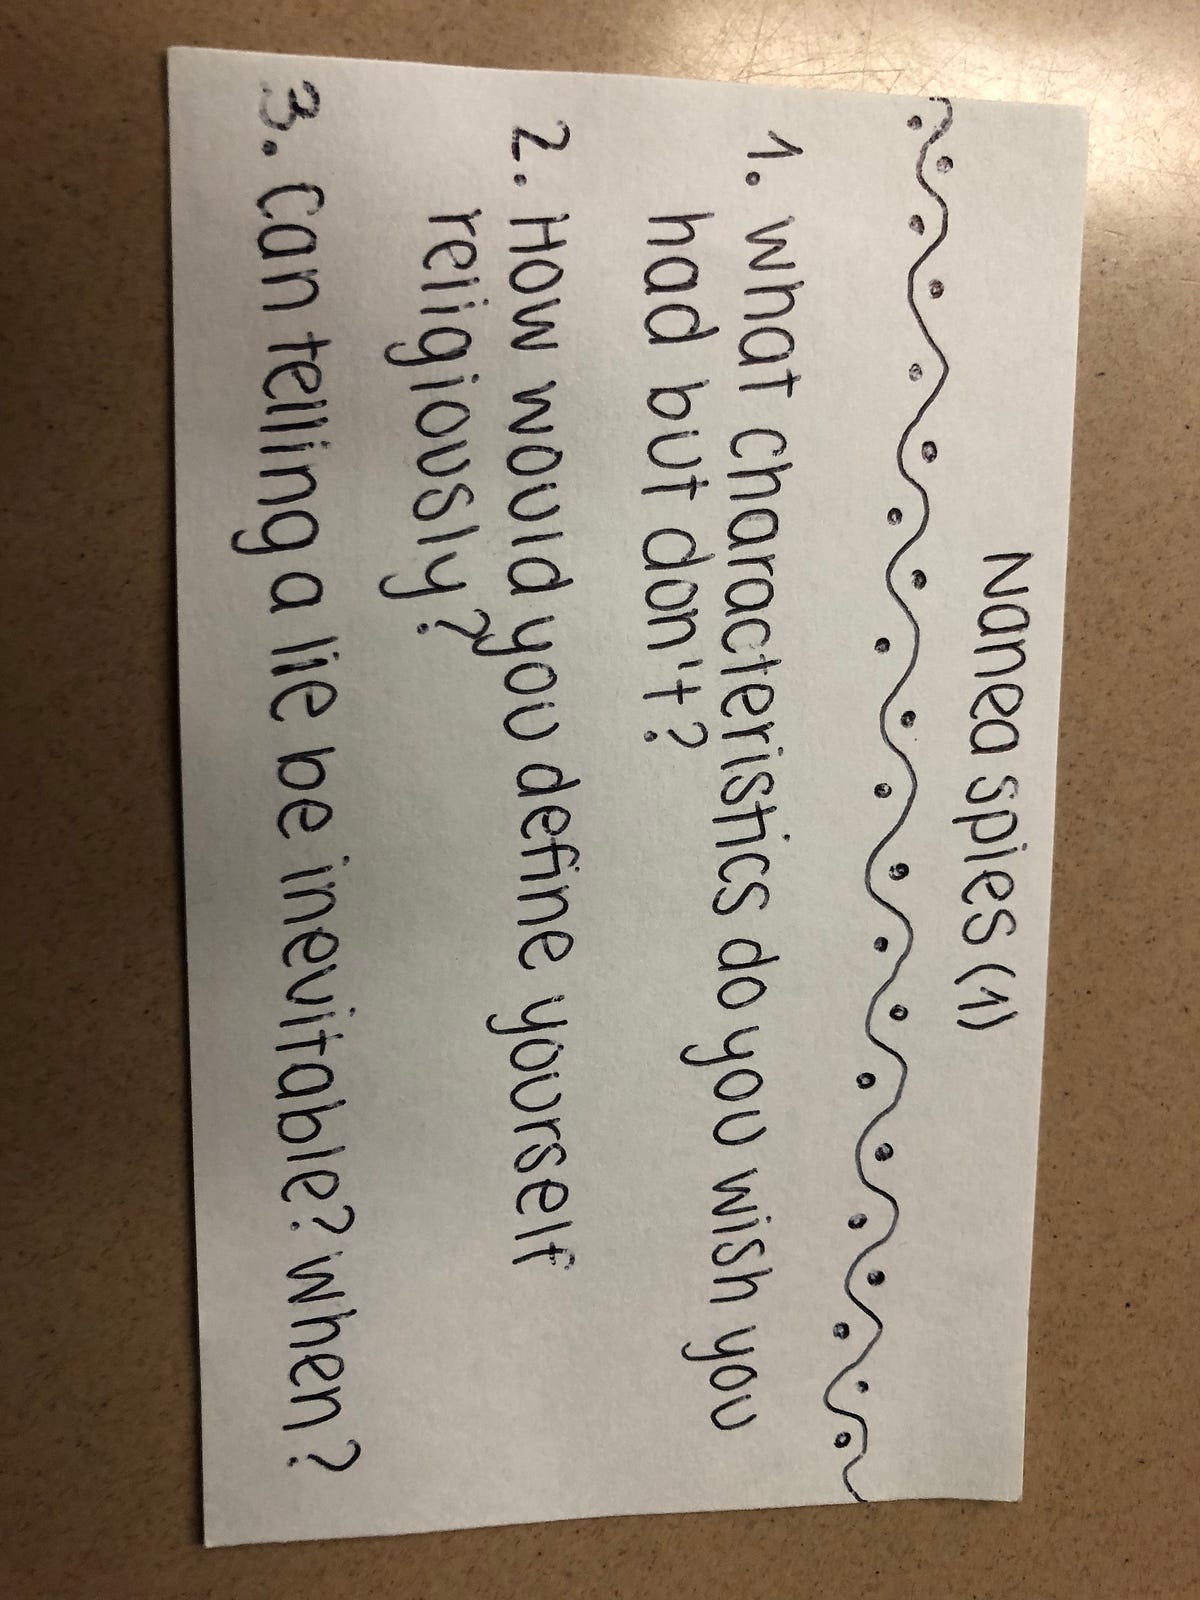 Nanea spies (1)
1. What characteristics do you wish you
had but don't?
2. How would you define yourself
religiously?
3. Can telling a lie be inevitable? When?